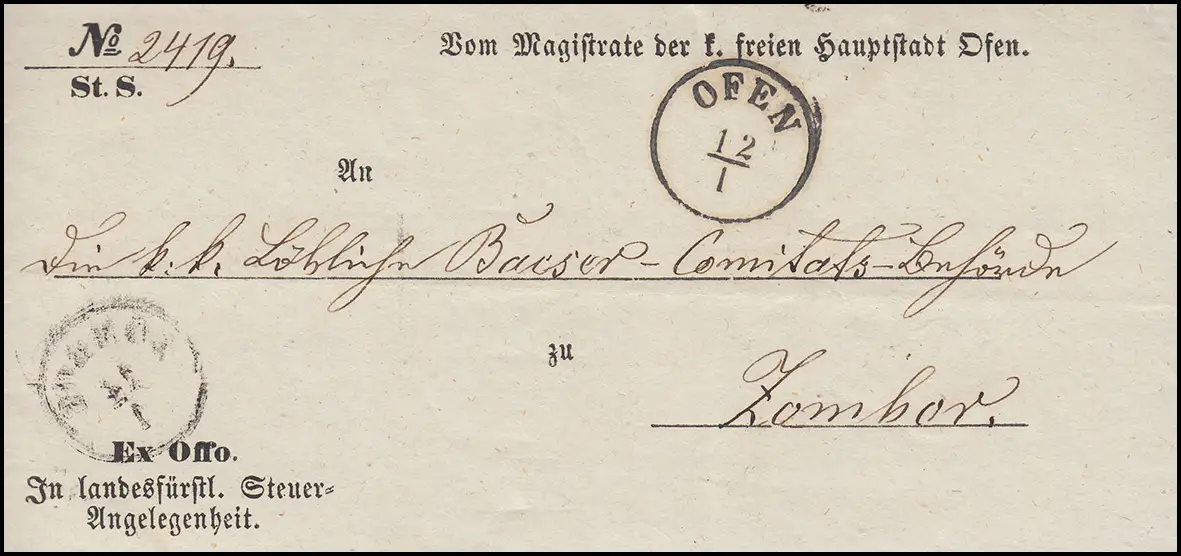 No 2419.
St. S.
Vom Magistrate der k. freien Hauptstadt Ofen.
OFEN
12/1
An
die k. k. Löbliche Bacser-Comitats-Behörde
zu
Zombor.
Ex Offo.
In landesfürstl. Steuer-
Angelegenheit.